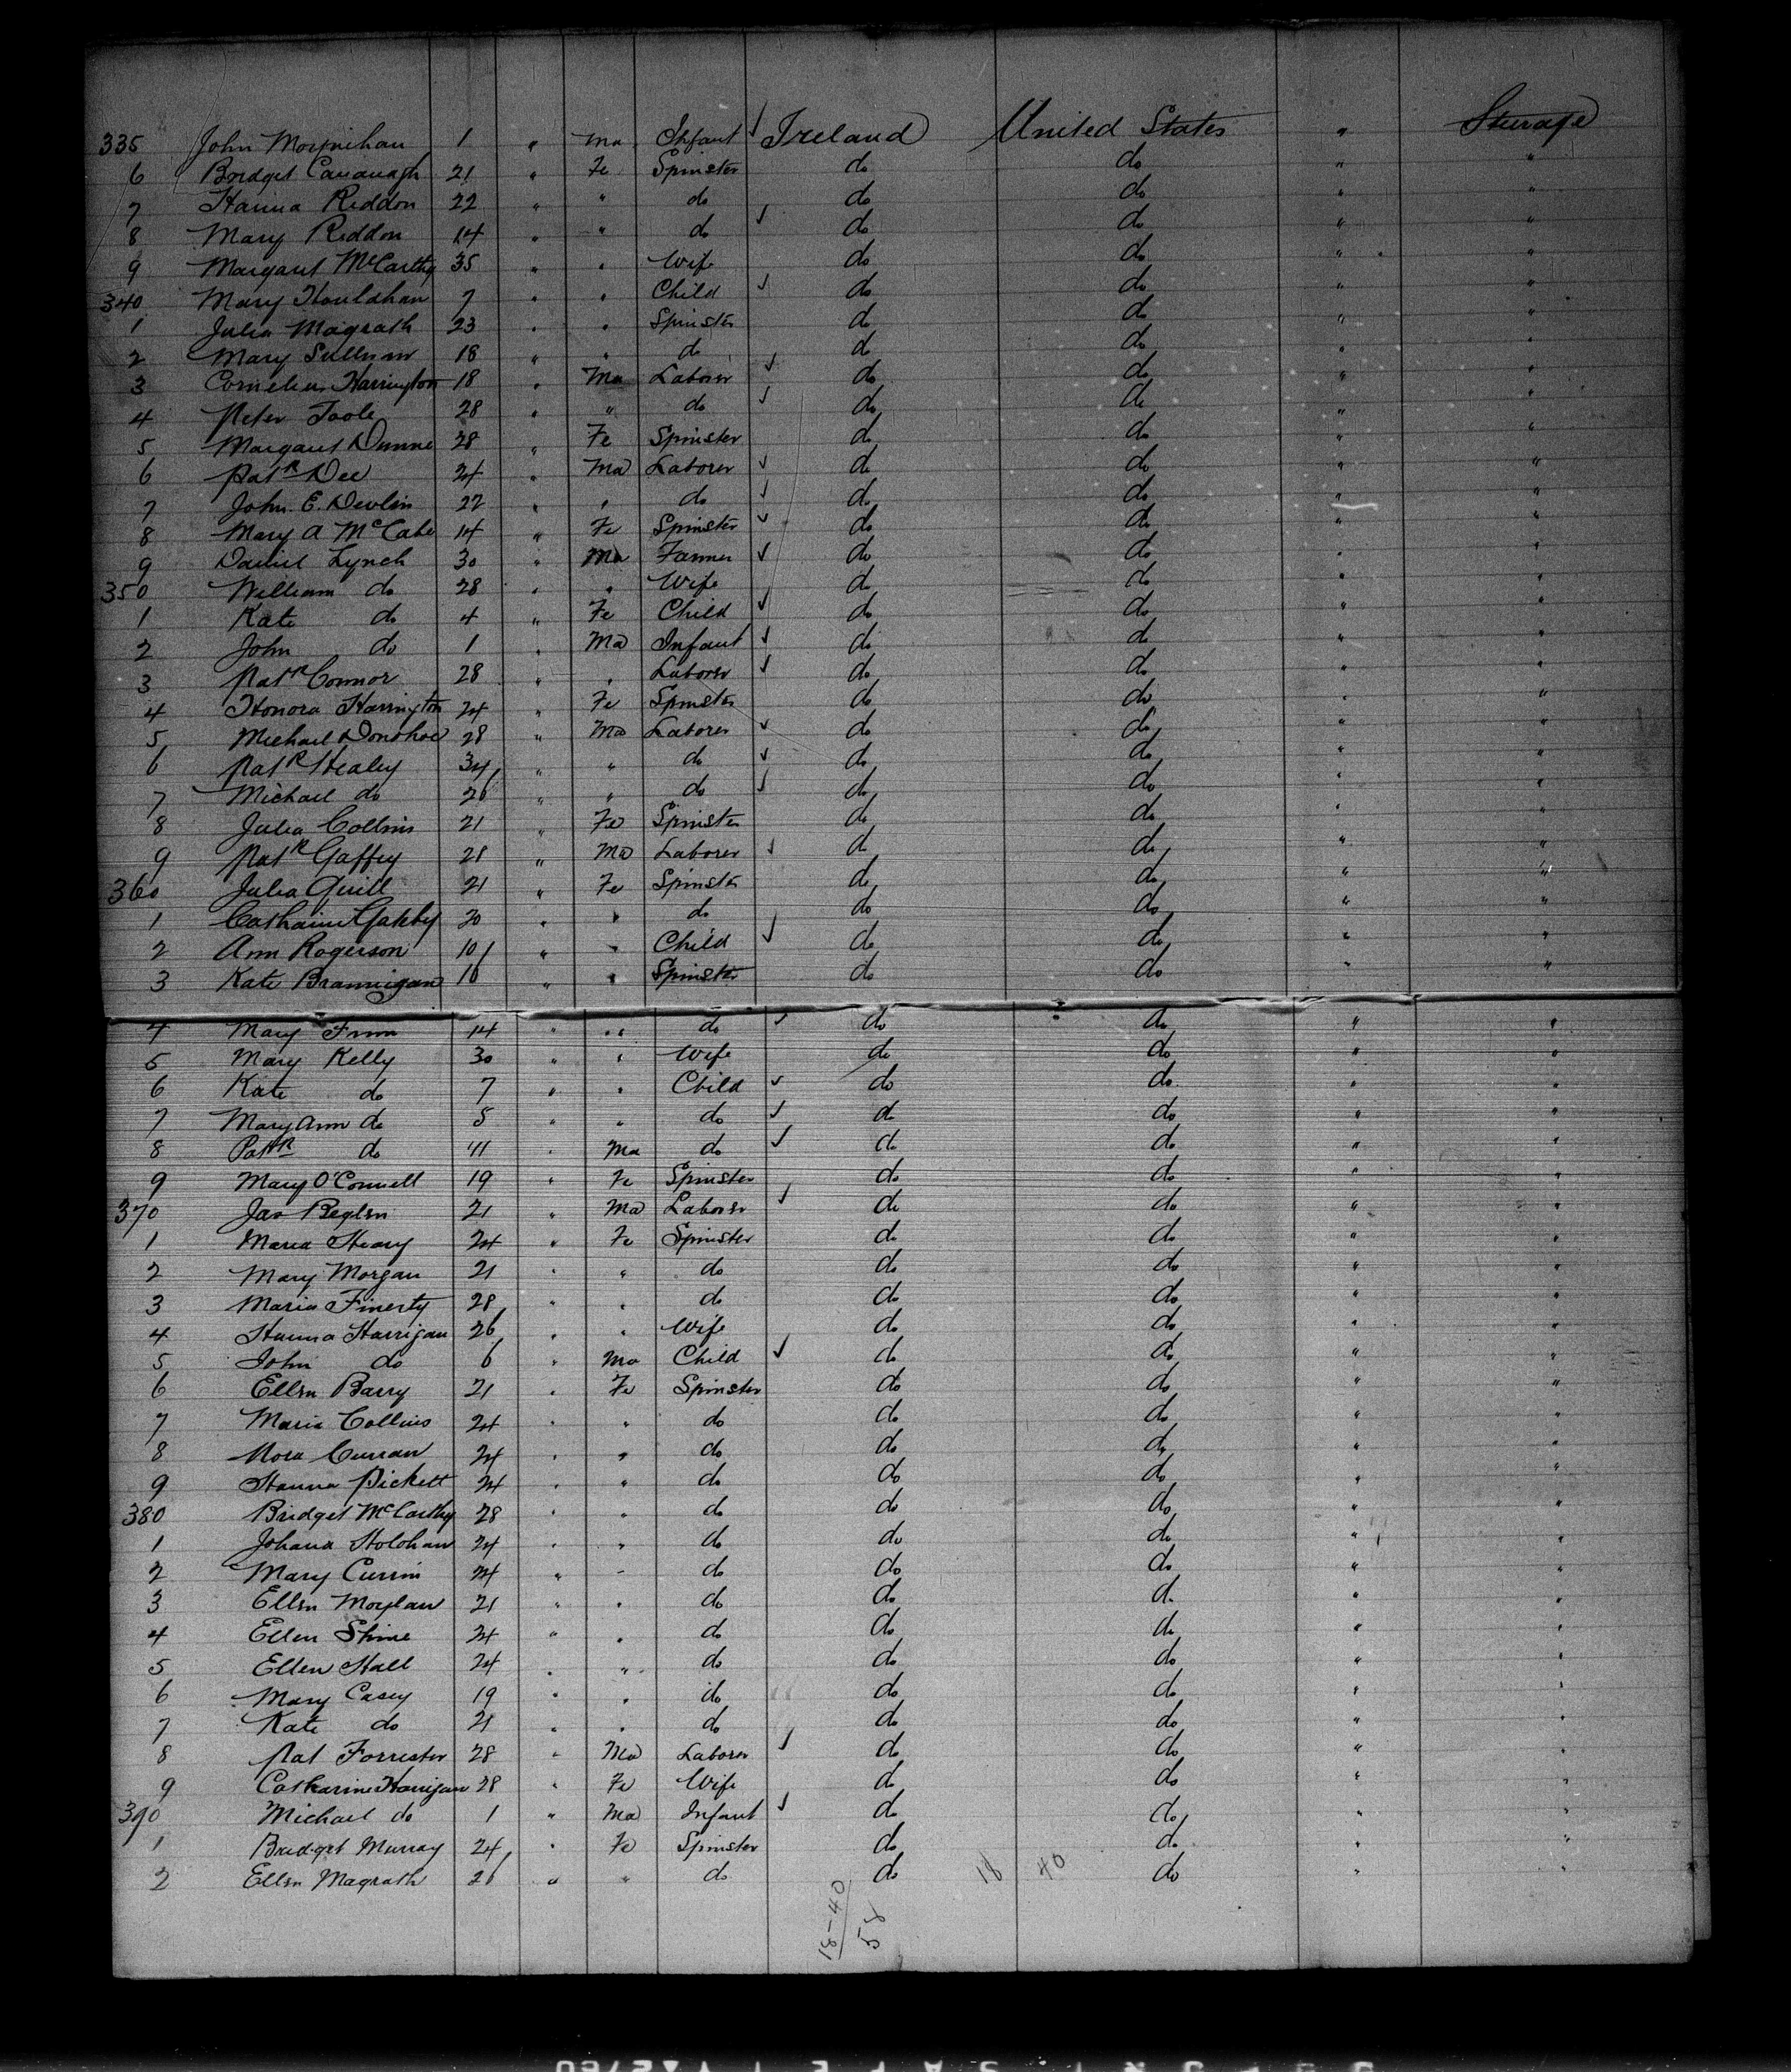 335 John Moynihan 1 " Ma Infant Ireland United States " Steerage
6 Bridget Cavanagh 21 " Fe Spinster do do " "
7 Hanna Reddon 22 " " do do do " "
8 Mary Reddon 14 " " do do do " "
9 Margaret McCarthy 35 " " Wife do do " "
340 Mary Houlahan 7 " " Child do do " "
1 Julia Magrath 23 " " Spinster do do " "
2 Mary Sullivan 18 " " do do do " "
3 Cornelius Harrington 18 " Ma Laborer do do " "
4 Peter Toole 28 " " do do do " "
5 Margaret Dunne 28 " Fe Spinster do do " "
6 Patk Dee 24 " Ma Laborer do do " "
7 John E. Devlin 22 " " do do do " "
8 Mary A McCabe 14 " Fe Spinster do do " "
9 Daniel Lynch 30 " Ma Farmer do do " "
350 William do 28 " " Wife do do " "
1 Kate do 4 " Fe Child do do " "
2 John do 1 " Ma Infant do do " "
3 Patk Connor 28 " " Laborer do do " "
4 Honora Harrington 24 " Fe Spinster do do " "
5 Michael Donohoe 28 " Ma Laborer do do " "
6 Patk Healey 34 " " do do do " "
7 Michael do 26 " " do do do " "
8 Julia Collins 21 " Fe Spinster do do " "
9 Patk Gaffey 28 " Ma Laborer do do " "
360 Julia Quill 21 " Fe Spinster do do " "
1 Catharine 20 " " do do do " "
2 Ann Rogerson 10 " " Child do do " "
3 Kate Brannigan 16 " " Spinster do do " "
4 Mary Finn 14 " " do do do " "
5 Mary Kelly 30 " " Wife do do " "
6 Kate do 7 " " Child do do " "
7 Mary Ann do 5 " " do do do " "
8 Patk do 11 " Ma do do do " "
9 Mary O'Connell 19 " Fe Spinster do do " "
370 Jas Beglen 21 " Ma Laborer do do " "
1 Maria Heary 24 " Fe Spinster do do " "
2 Mary Morgan 21 " " do do do " "
3 Maria Finerty 28 " " do do do " "
4 Hanna Harrigan 26 " " Wife do do " "
5 John do 6 " Ma Child do do " "
6 Ellen Barry 21 " Fe Spinster do do " "
7 Maria Collins 24 " " do do do " "
8 Nora Curran 24 " " do do do " "
9 Hanna Pickett 24 " " do do do " "
380 Bridget McCarthy 28 " " do do do " "
1 Johana Holohan 24 " " do do do " "
2 Mary Currin 24 " " do do do " "
3 Ellen Moylan 21 " " do do do " "
4 Ellen Shine 24 " " do do do " "
5 Ellen Hall 24 " " do do do " "
6 Mary Casey 19 " " do do do " "
7 Kate do 21 " " do do do " "
8 Pat Forrester 28 " Ma Laborer do do " "
9 Catharine Harrigan 28 " Fe Wife do do " "
390 Michael do 1 " Ma Infant do do " "
1 Bridget Murray 24 " Fe Spinster do do " "
2 Ellen Magrath 26 " " do do 18 40 do " "
18-40
58